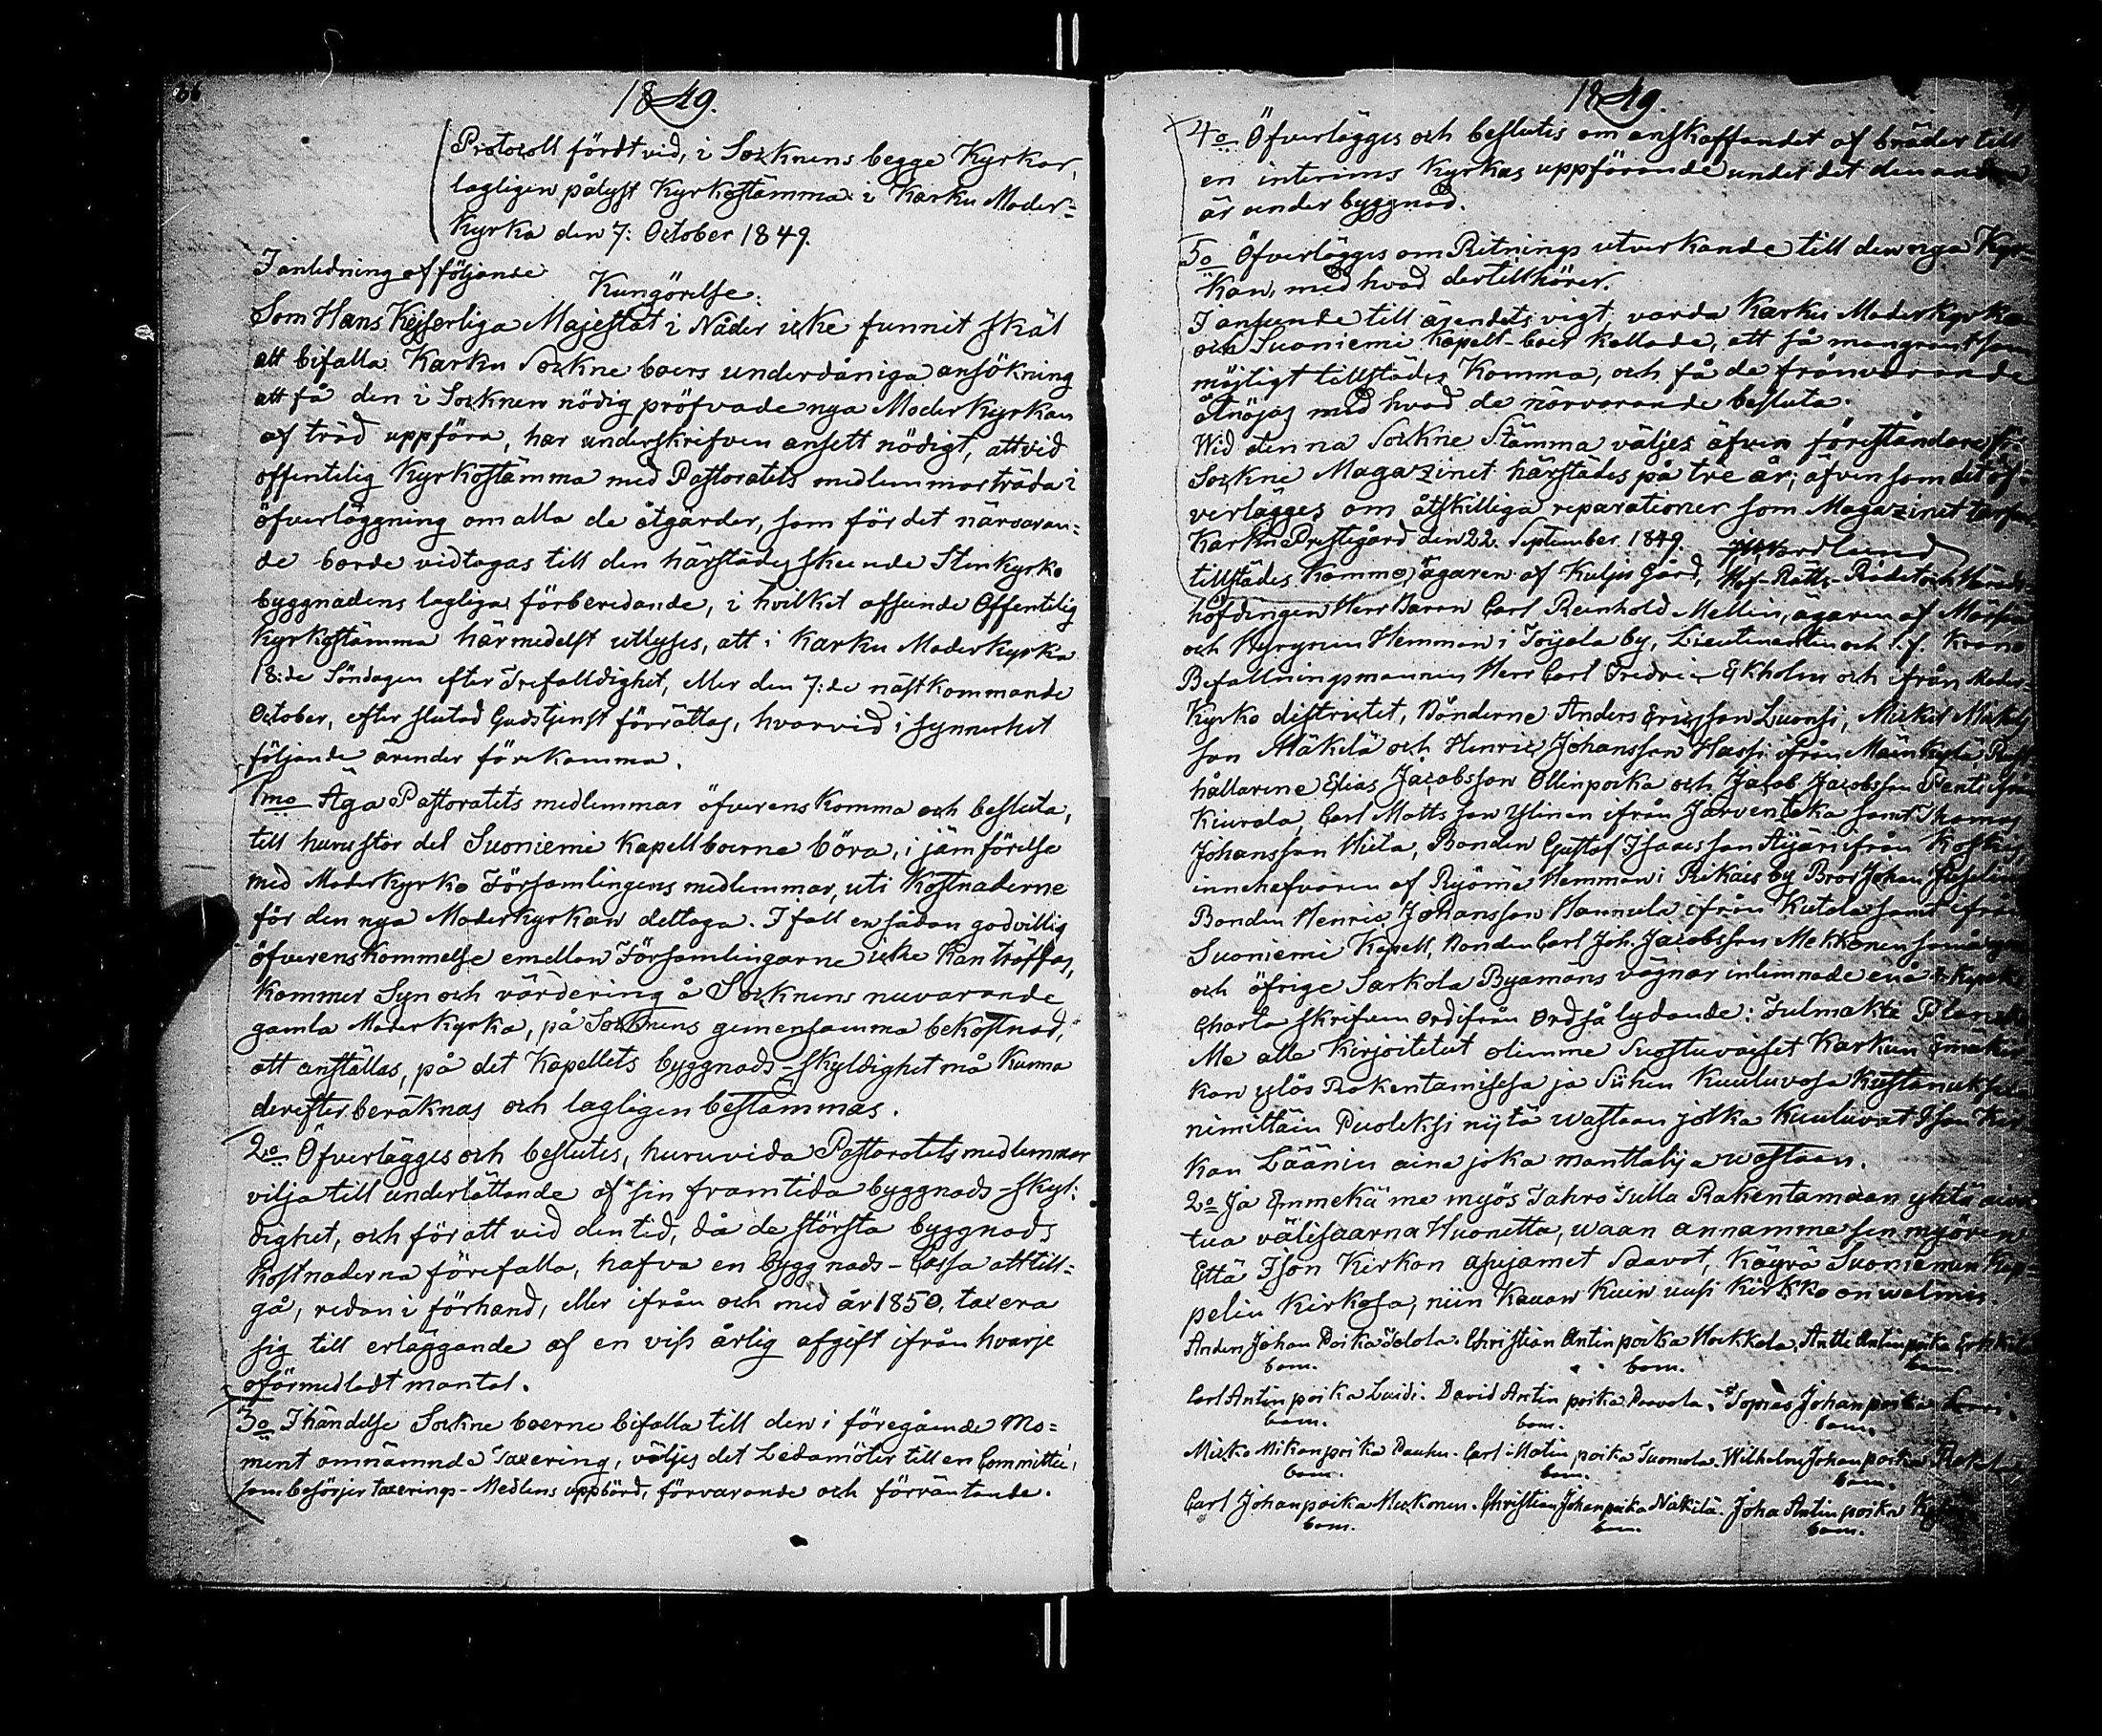 66
1849.
Protocoll fördt vid, i Socknens begge Kyrkor,
lagligen pålyst Kyrkostämma i Karku Moder=
Kyrka den 7: October 1849.
I anledning af följande
Kungörelse.
Som Hans Kejserliga Majestät i Nåder icke funnit skäl
att bifalla Karku Sockne boers underdåniga ansökning
att få den i Socknen nödig pröfvade nya Moder Kyrkan
af träd uppföra, har underskrifven ansett nödigt, att vid
offentelig Kyrkostämma med Pastoratets medlemmar träda i
öfverläggning om alla de åtgärder, som för det närvaran=
de borde vidtagas till den härstädes skeende Stenkyrko
byggnadens lagliga förberedande, i hvilket afseende Offentelig
Kyrkostämma härmedelst utlyses, att i Karku Moder Kyrka
18:de Söndagen efter Trefalldighet, eller den 7:de nästkommande
October, efter slutad Gudstjenst förrättas, hvarvid i synnerhet
följande ärender förekomma.
1mo Äga Pastoratets medlemmar öfverens komma och besluta,
till huru stor del Suoniemi Kapellboerne böra, i jämförelse
med Moderkyrko Församlingens medlemmar, uti Kostnaderne
för den nya Moderkyrkan deltaga. I fall en sådan godvillig
öfverenskommelse emellan Församlingarne icke kan träffas,
kommer Syn och värdering å Socknens nuvarande
gamla Moder Kyrka, på Socknens gemensamma bekostnad,
att anställas, på det Kapellets byggnads-skyldighet må kunna
derefter beräknas och lagligen bestämmas.
2o Öfverlägges och beslutes, huruvida Pastoratets medlemmar
vilja till underlättande af sin framtida byggnads-skyl=
dighet, och för att vid den tid, då de största byggnads
Kostnaderna förefalla, hafva en byggnads-Cassa att till=
gå, redan i förhand, eller ifrån och med år 1850, taxera
sig till erläggande af en viss årlig afgift ifrån hvarje
oförmedladt mantal.
3o I händelse Sockne boerne bifalla till den i föregående Mo=
ment omnämnde Taxering, väljes det Ledamöter till en Committé,
som besörjer taxerings-Medlens uppbörd, förvarande och förräntande.
1849.
4o Öfverlägges och beslutes om anskaffandet af bräder till
en interims Kyrkas uppförande under det den andra
är under byggnad.
5o Öfverlägges om Ritnings utverkande till den nya Kyr=
kan, med hvad dertill hörer.
I anseende till ärendets vigt varda Karku Moderkyrko
och Suoniemi Kapell-boer kallade, att så mangrant som
möjligt tillstädes Komma, och få de frånvarande
åtnöjas med hvad de närvarande besluta.
Wid denna Sockne Stämma väljes äfven föreståndare för
Sockne Magazinet härstädes på tre år, äfvensom det öf=
verlägges om åtskilliga reparationer som Magazinet tarfvar.
Karku Prestegård den 22. September 1849. Nordlund
tillstädes kommo, ägaren af Kulju Gård, Hof-Rätts-Rådet och Härads
höfdingen Herr Baron Carl Reinhold Mellin, ägaren af
och Hyrysen Hemman i Toijala by, Lieutenanten och t.f. Krono
Befallningsmannen Herr Carl Fredric Ekholm och ifrån Moder=
Kyrko districtet, Bönderne Anders Ericsson Luonsi, Mickel Mickels
son Mäkilä och Henric Johansson Hassi ifrån
hållarene Elias Jacobsson Ollinpoika och Jacob Jacobsson Panti ifrån
Kiurala, Carl Matts son Ylinen ifrån Järventaka samt Thomas
Johansson Hiita, Bonden Gustaf Isacsson Äijäri ifrån Koskis,
innehafvaren af Ryömä Hemman i Rikais by Bror Johan
Bonden Henric Johansson Hannula ifrån Kutala samt ifrån
Suoniemi Kapell, Bonden Carl Joh. Jacobsson Mekkonen som å egna
och öfrige Sarkola Byamäns vägnar inlemnade ena
Charta skrifven ord ifrån ord så lydande: Fulmakti
Me alle Kirjoitetut olemme Suostuvaiset Karkun Emäkir
kon ylös Rakentamisesa ja Siihen Kuuluvasa Kustanuksesa
nimittäin Puoleksi nijtä wastaan jotka Kuuluvat Ison Kir
kon Lääniin aina joka manttalija wastaan.
2o Ja Emmekä me myös Tahro Tulla Rakentamaan yhtä ainu
tua välisaarna Huonetta, waan annamme sen myören
Että Ison Kirkon asujamet Saavot, Käyrä Suoniemen Kap=
pelin Kirkosa, niin Kauan Kuin uusi Kirkko on walmis.
Anders Johan Poika Tolola. Christian Antin poika Horkkola, Antti Antinpoika Erkkilä
bom. bom. bom.
Carl Antin poika Luidi. David Antin poika Paavola. Topias Johanpoika
bom. bom. bom.
Micko Mikonpoika Pauhu. Carl Matin poika Tuomola. Wilhelm Johanpoika
bom. bom. bom.
Carl Johanpoika Meckonen. Christian Johanpoika Nakkilä. Joha Antin poika
bom. bom. bom.